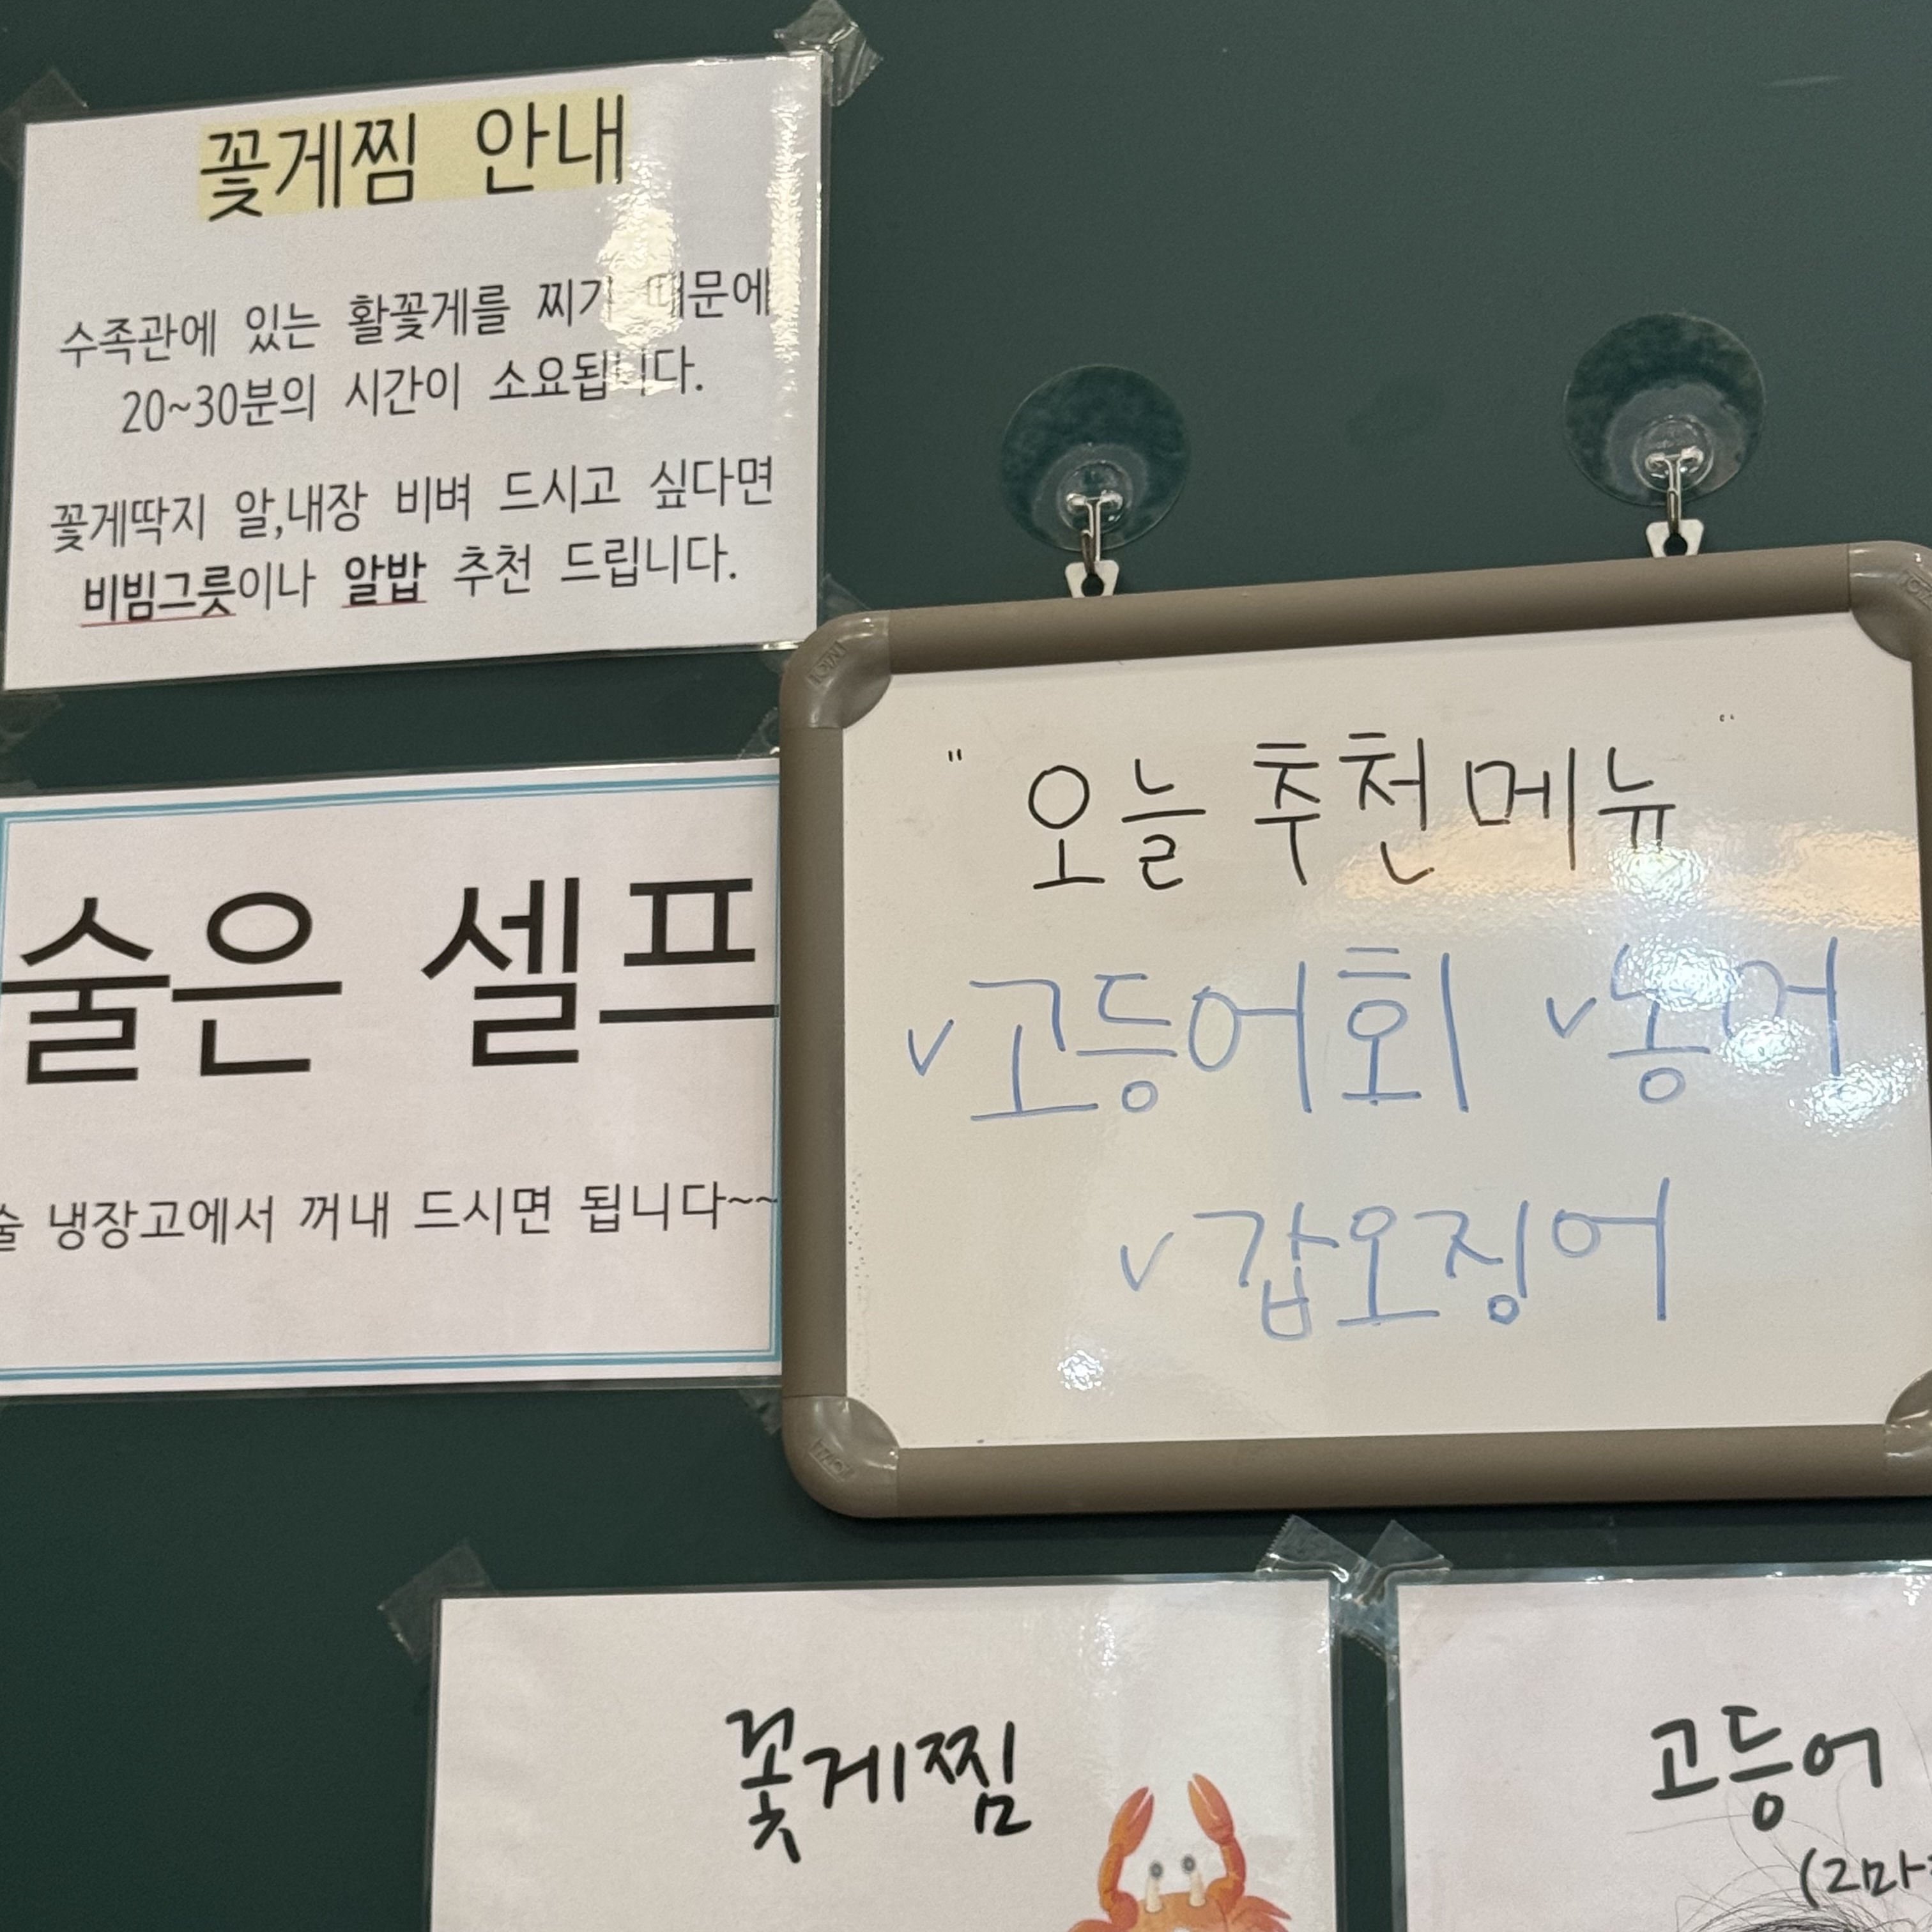 꽃게찜 안내
수족관에 있는 활꽃게를 찌기 때문에
20~30분의 시간이 소요됩니다.
꽃게딱지 알,내장 비벼 드시고 싶다면
비빔그릇이나 알밥 추천 드립니다.
술은 셀프
술 냉장고에서 꺼내 드시면 됩니다~~
" 오늘 추천메뉴 "
✓고등어회 ✓농어
✓갑오징어
꽃게찜
고등어
(2마